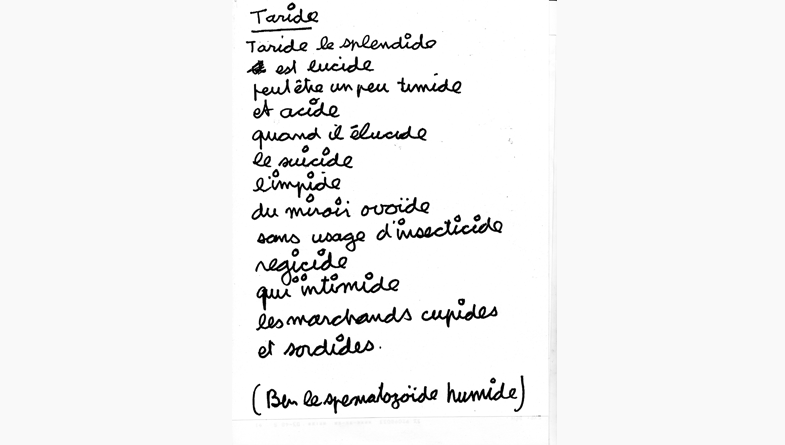 Taride
Taride le splendide
est lucide
peut être un peu timide
et acide
quand il élucide
le suicide
limpide
du miroir ovoïde
sans usage d'insecticide
regicide
qui intimide
les marchands cupides
et sordides.
(Ben le spermatozoïde humide)